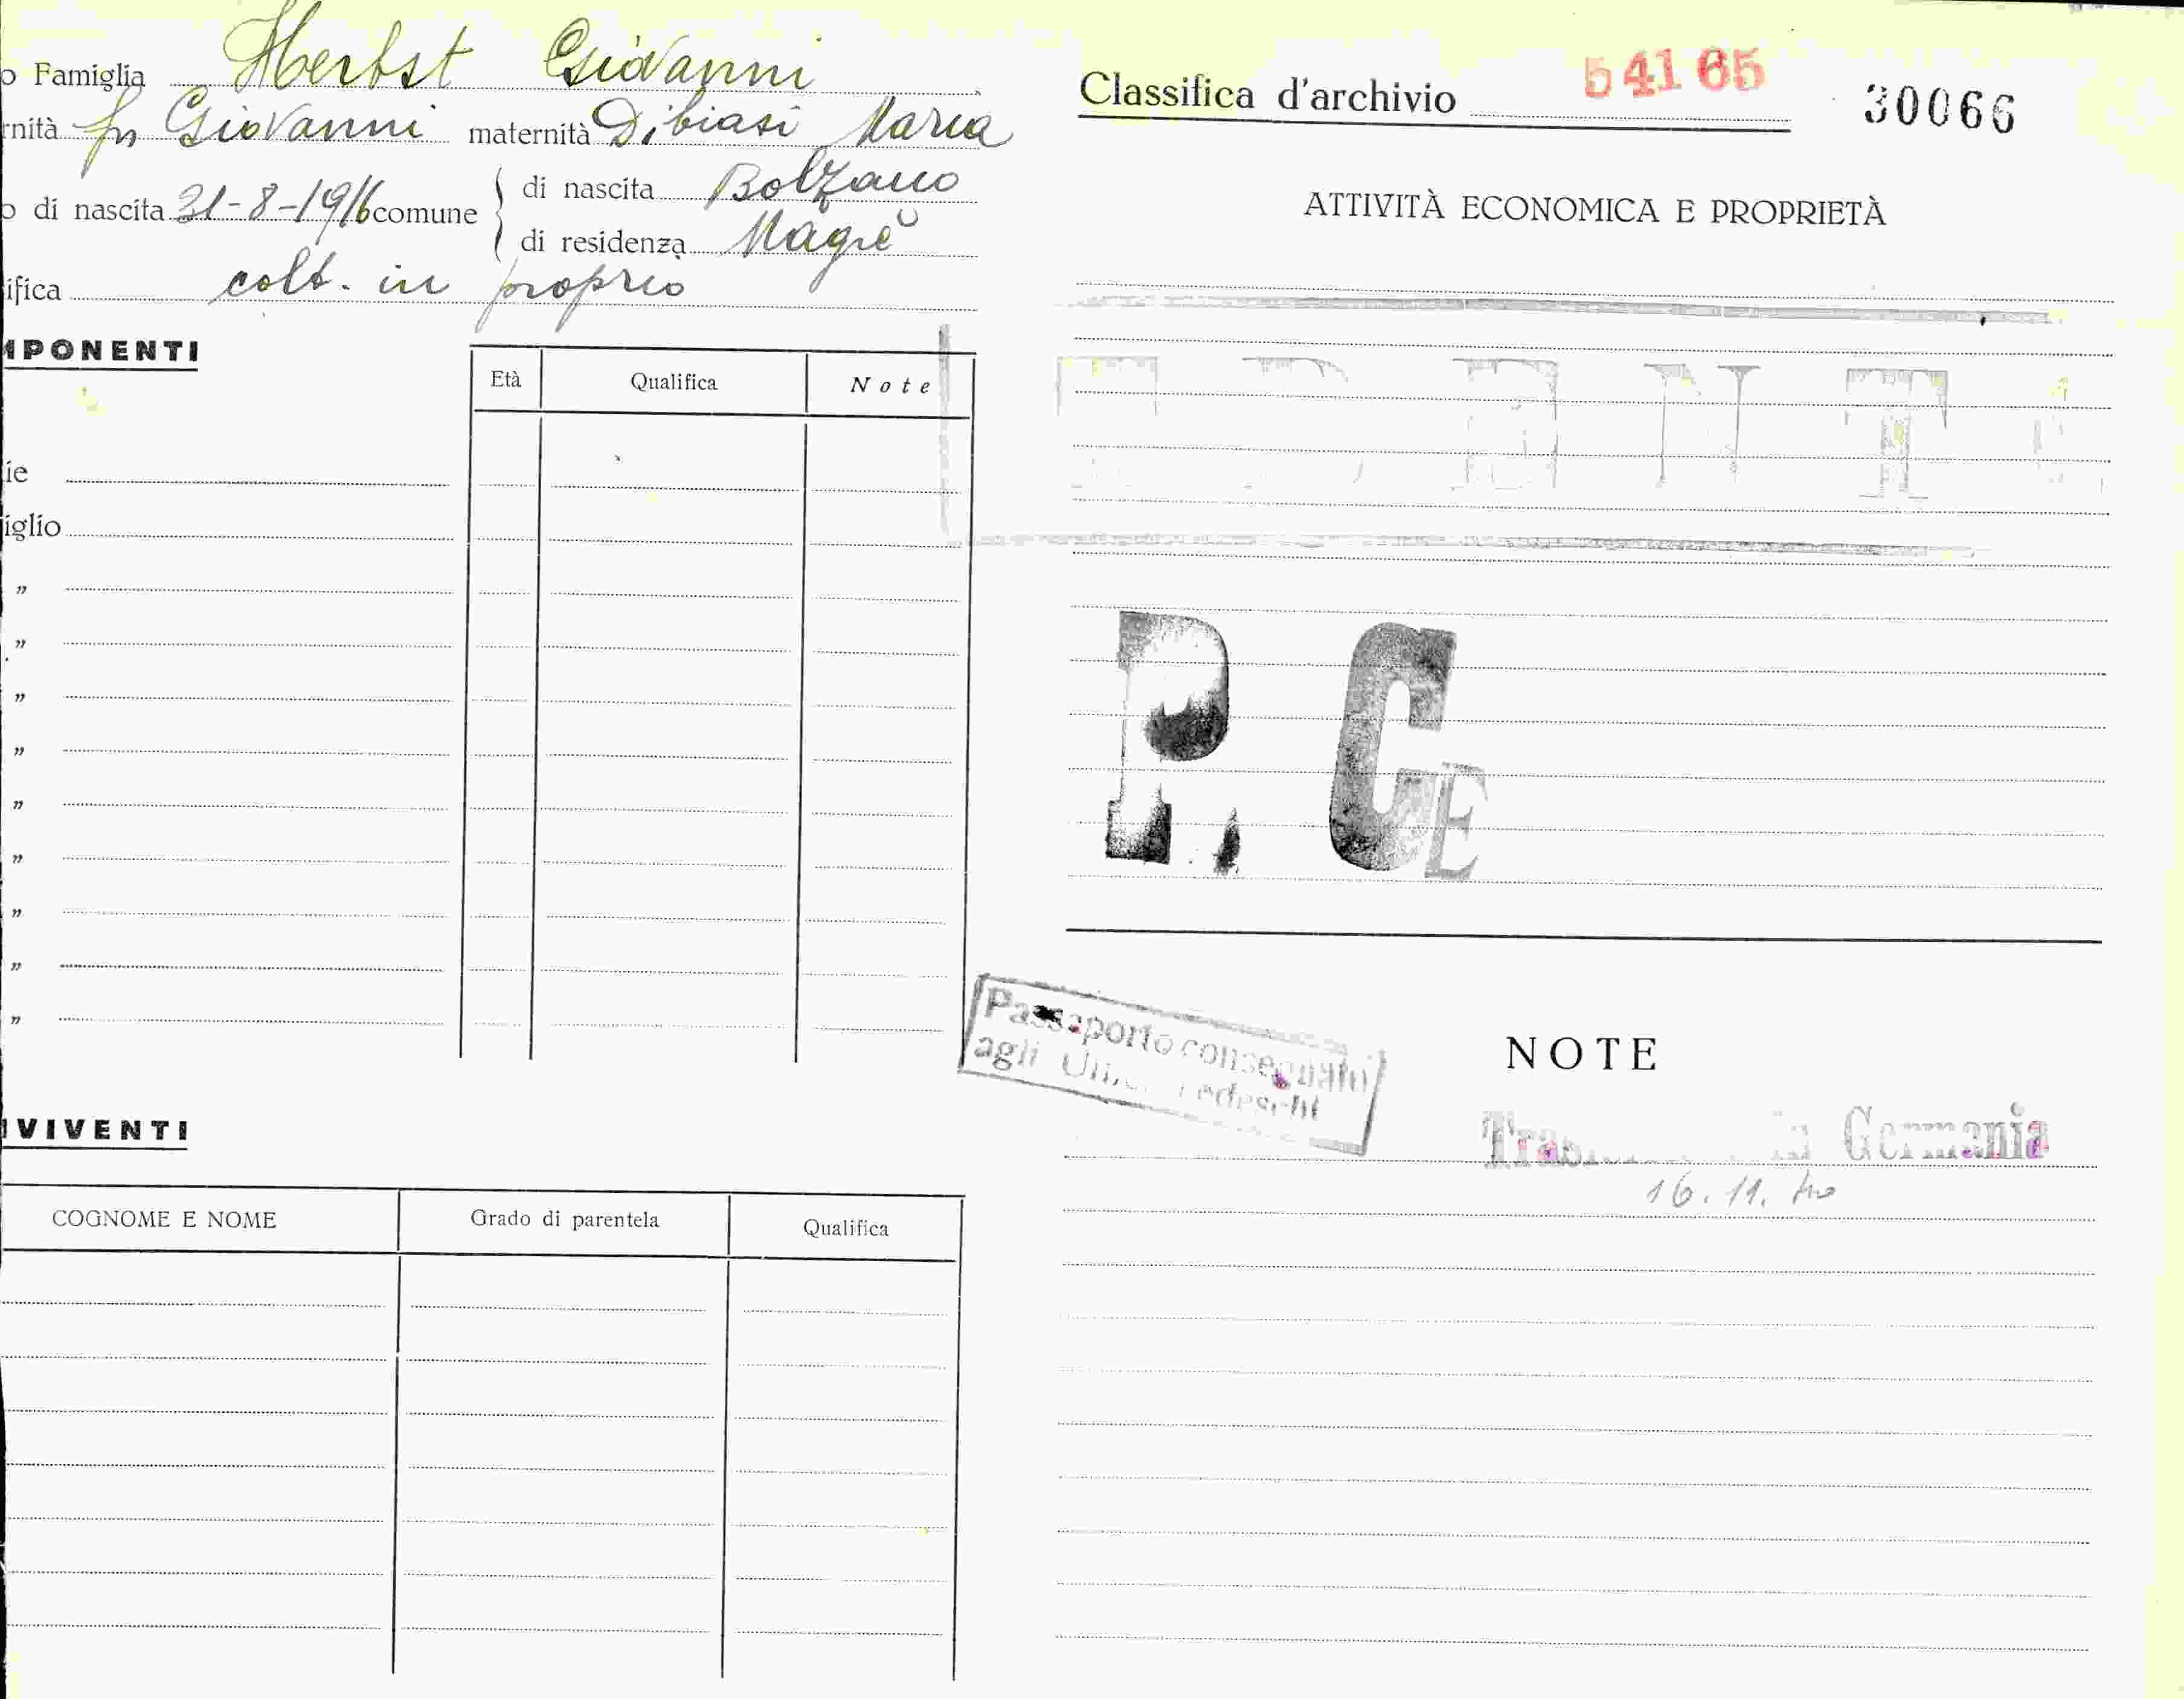 o Famiglia Herbst Giovanni
rnità fu Giovanni maternità Dibiasi Maria
o di nascita 31-8-1916 comune di nascita Bolzano
di residenza Magrè
ifica colt. in proprio
MPONENTI
Età Qualifica Note
ie
iglio
"
"
"
"
"
"
"
"
"
VIVENTI
COGNOME E NOME Grado di parentela Qualifica
Classifica d'archivio 54165 30066
ATTIVITÀ ECONOMICA E PROPRIETÀ
P. CE
Passaporto consegnato
agli Tedeschi
NOTE
Germania
16.11.40